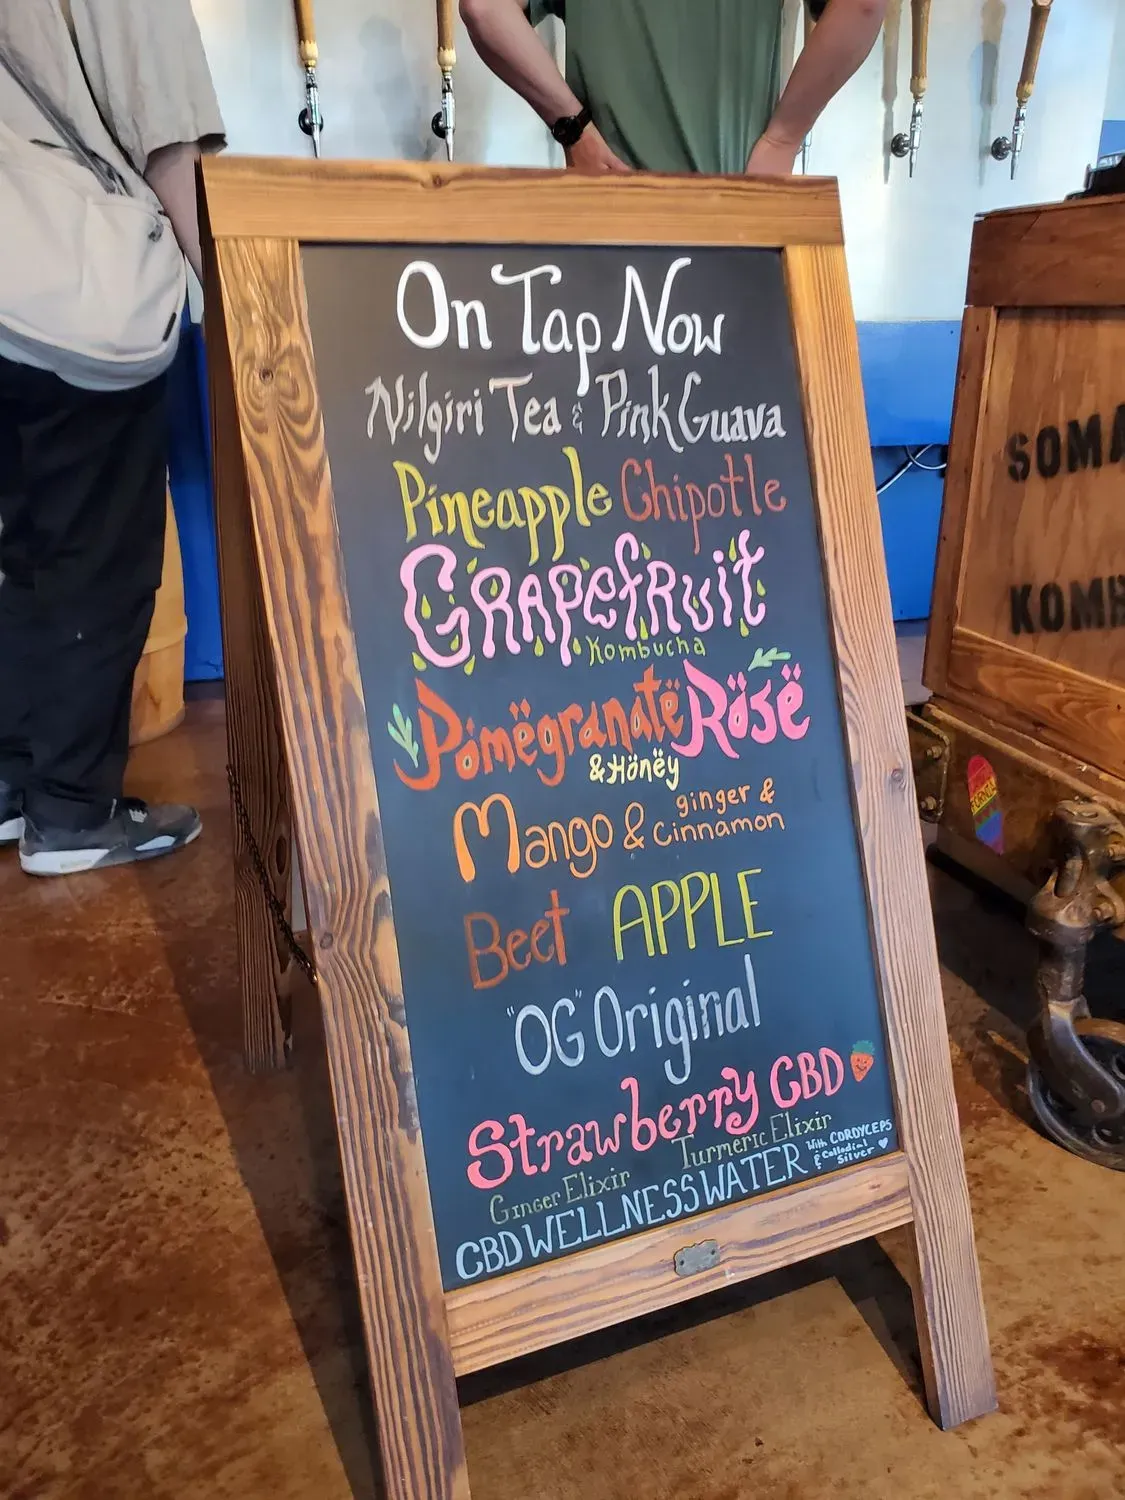 On Tap Now
Nilgiri Tea & Pink Guava
Pineapple Chipotle
GRAPefRuit
Kombucha
Pömëgranatë RöSë
& Hönëy
Mango & ginger &
Cinnamon
Beet APPLE
"OG" Original
Strawberry CBD
Ginger Elixir
Turmeric Elixir
CBD WELLNESS WATER
With CORDYCEPS
& Collodial
Silver
SOMA
KOMB